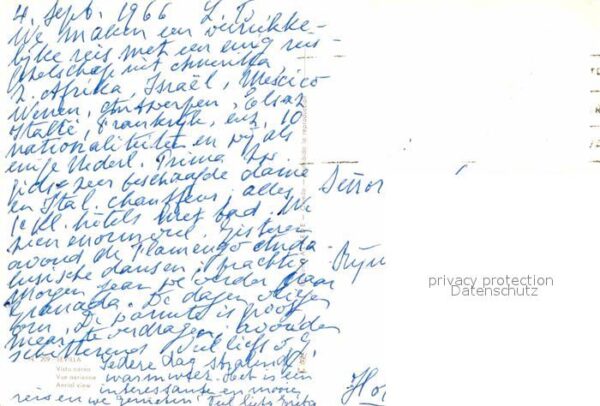 4. Sept. 1966 L. T.
We maken een verrukke-
lijke reis met een enig reis-
gezelschap uit Amerika,
Z. Afrika, Israël, Mexico
Wenen, Antwerpen, Elzas
Italië, Frankrijk, enz. 10
nationaliteiten en wij als
enige Nederl. Prima
zeer beschaafde dame
en Ital. chauffeur, alles
1e kl. hôtels met bad. We
zien enorm veel. Gisteren
avond de Flamengo Anda-
lusische dansen, prachtig
Morgen gaan we verder naar
Granada. De dagen vliegen
om. De warmte is goed
te verdragen, avonden
schitterend. Veel liefs v. G.
Iedere dag stralend
warm weer. Het is een
interessante en mooie
reis en we genieten! Veel liefs
SEVILLA
Vista aérea
Vue aérienne
Aerial view
Señor
privacy protection
Datenschutz